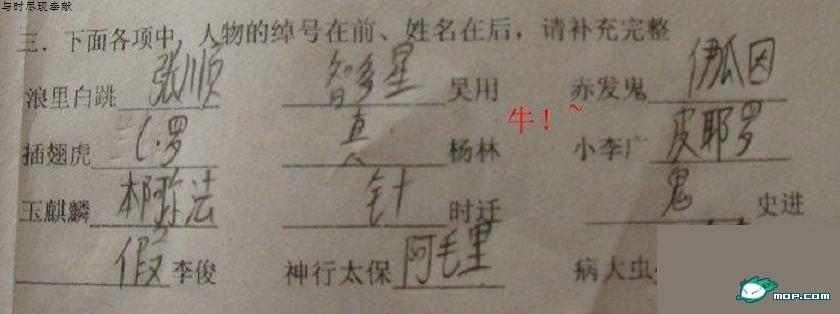 与时尽现奉献
三．下面各项中，人物的绰号在前、姓名在后，请补充完整
浪里白跳 张顺 智多星 吴用 赤发鬼 伊瓜因
牛！~
插翅虎 C.罗 真. 杨林 小李广 皮耶罗
玉麒麟 本阿弥法 针 时迁 鬼 史进
假 李俊 神行太保 阿毛里 病大虫
mop.com